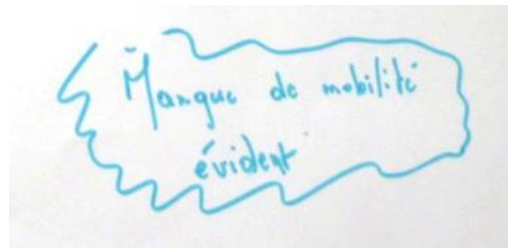 Manque de mobilité
évident